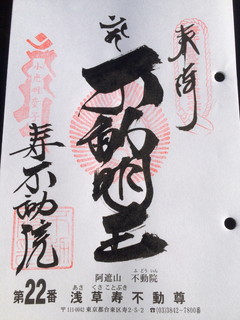 奉拝
不動明王
寿不動院
阿遮山 不動院
ふどういん
あさ くさ ことぶき
第22番 浅草寿不動尊
〒111-0042 東京都台東区寿2-5-2 ☎(03)3842-7800番